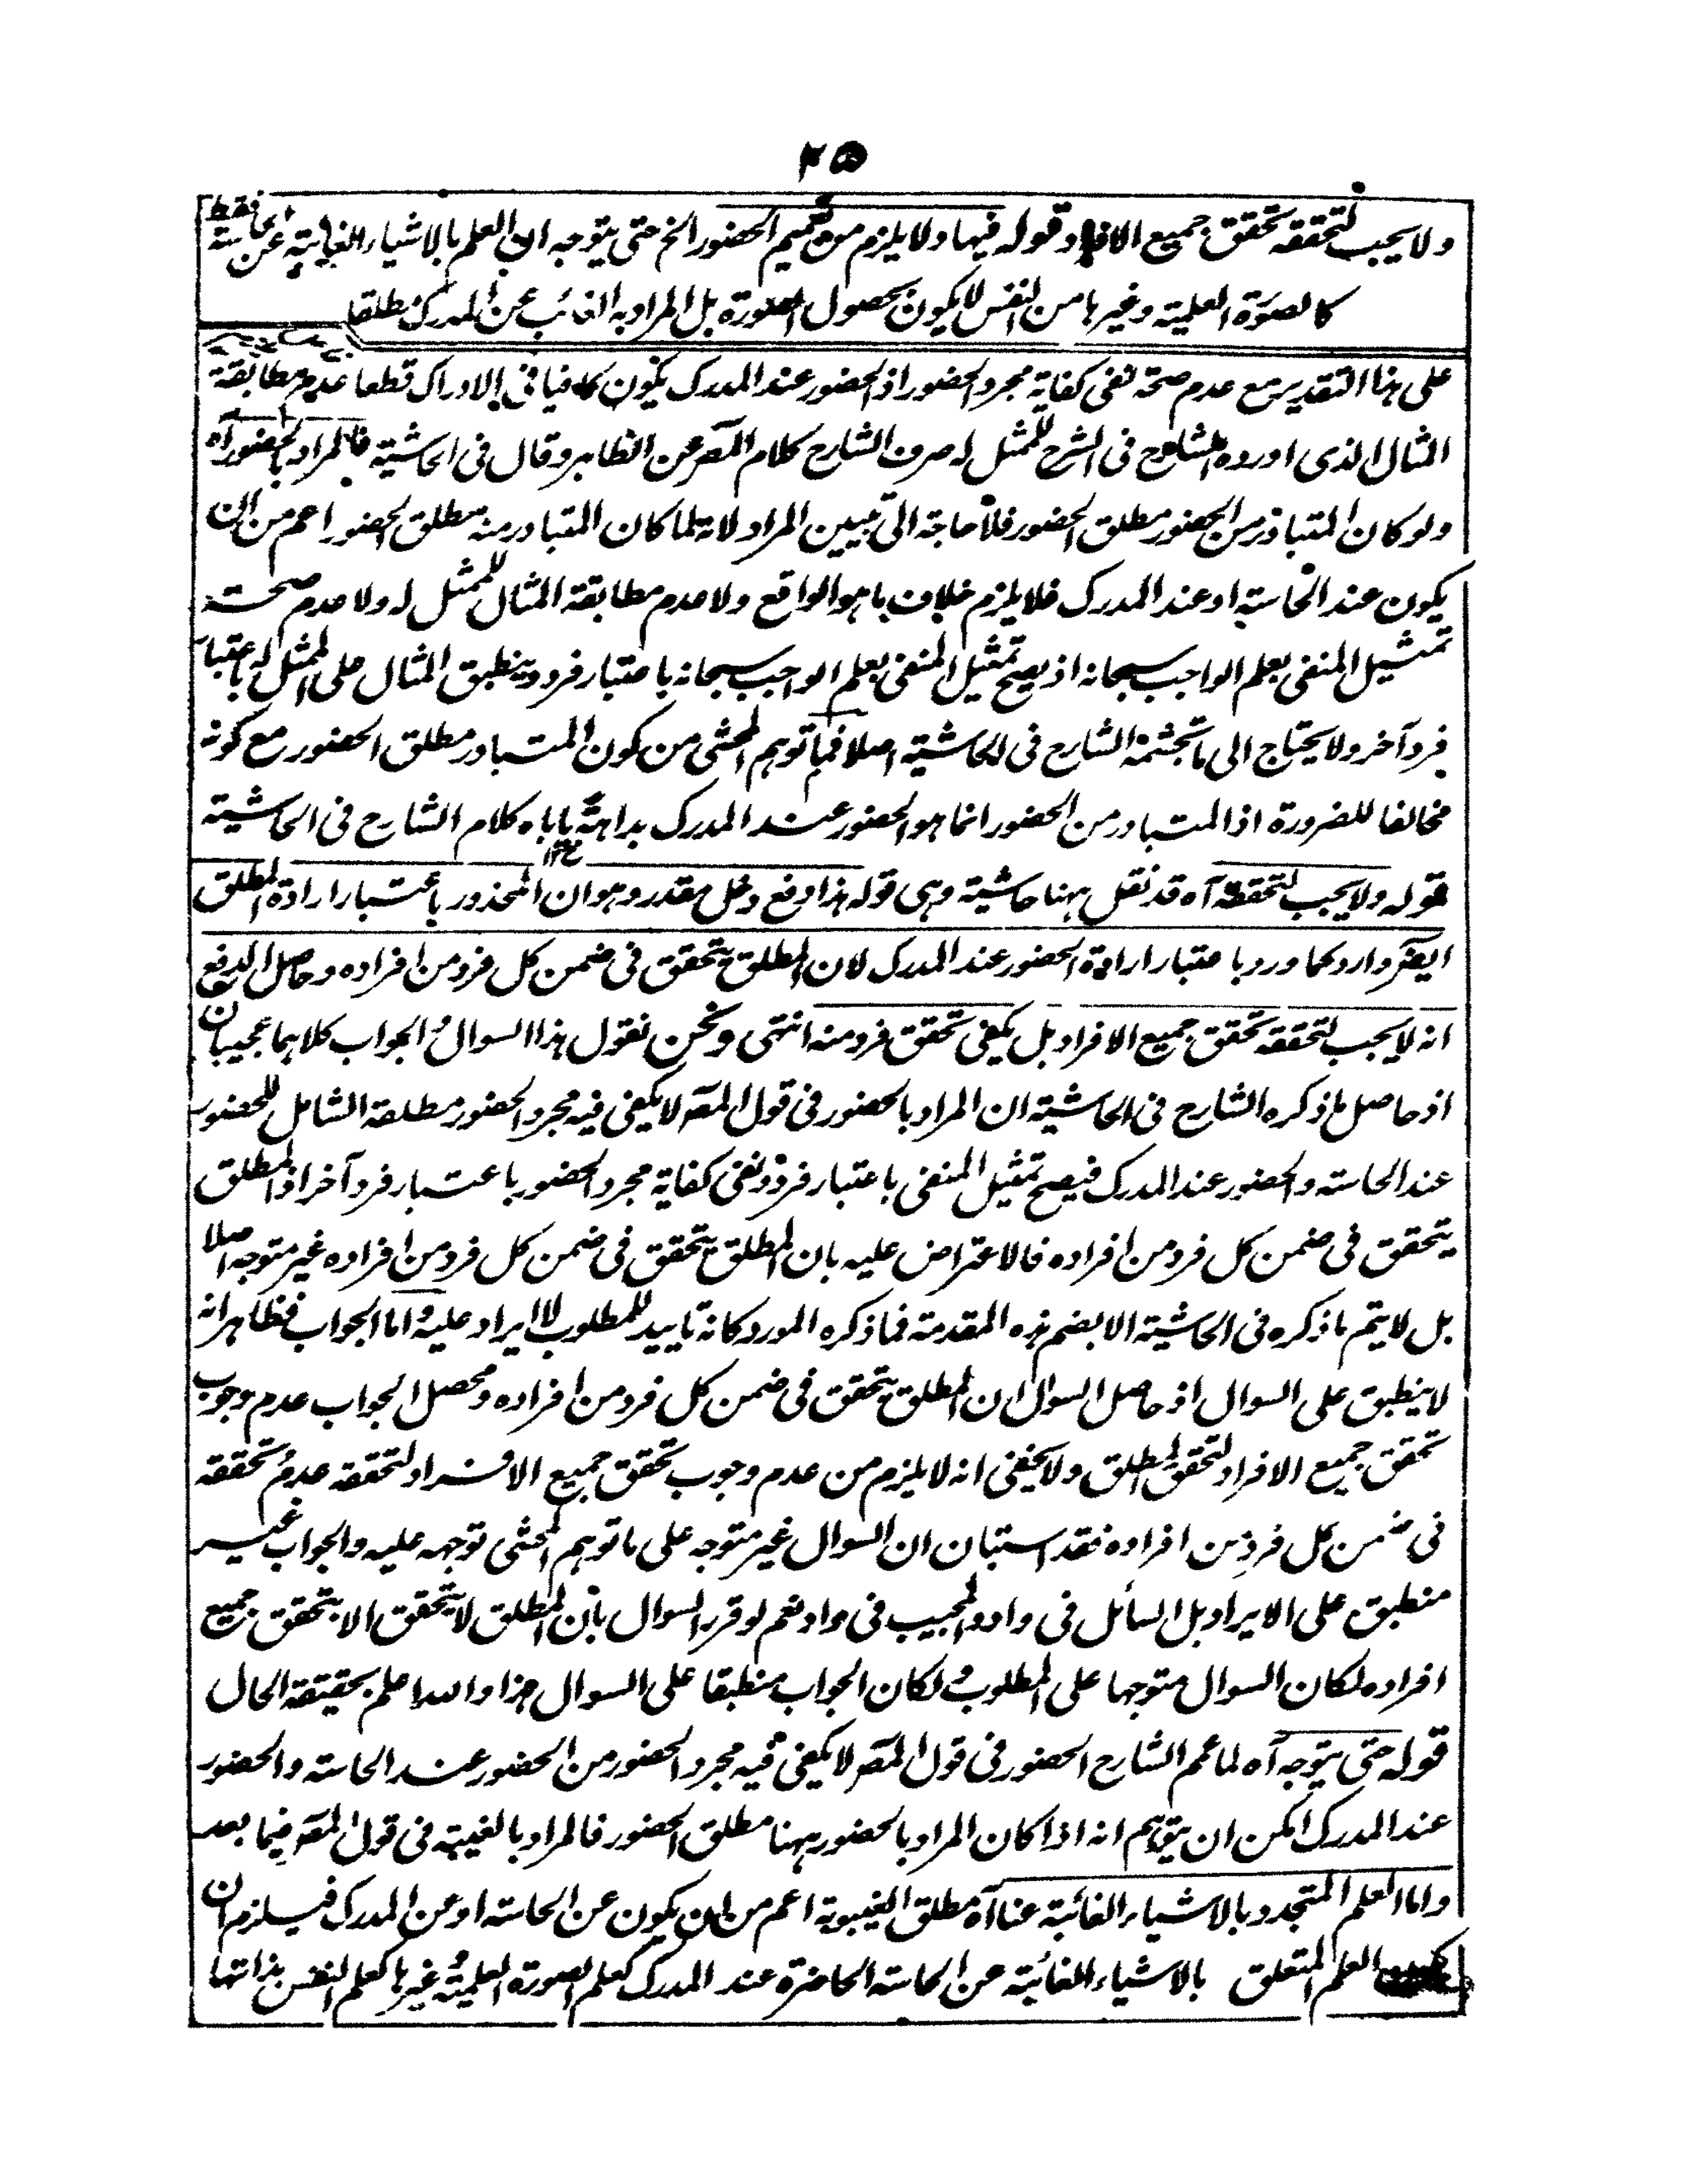 ٢٥
ولا يجب لتحققه تحقق جميع الافراد وقوله فيها ولا يلزم من تعميم الحضور الخ حتى يتوجه ان العلم بالاشياء الغائبة عن الحاسة فقط
كالصورة العلمية وغيرها من النفس لا يكون بحصول الصورة بل المراد به الغائب عن المدرك مطلقا
على هذا التقدير مع عدم صحة نفى كفاية مجرد الحضور اذ الحضور عند المدرك يكون كافيا فى الادراك قطعا عدم مطابقة
المثال الذى اورده الشارح فى الشرح للممثل له صرف الشارح كلام المصـ عن الظاهر وقال فى الحاشية فالمراد بالحضور آه
ولو كان المتبادر من الحضور مطلق الحضور فلا حاجة الى تبيين المراد لانه لما كان المتبادر منه مطلق الحضور اعم من ان
يكون عند الحاسة او عند المدرك فلا يلزم خلاف ما هو الواقع ولا عدم مطابقة المثال للممثل له ولا عدم صحة
تمثيل المنفى بعلم الواجب سبحانه اذ يصح تمثيل المنفى بعلم الواجب سبحانه باعتبار فرد وينطبق المثال على الممثل له باعتبار
فرد آخر ولا يحتاج الى ما تجشمه الشارح فى الحاشية اصلا فما توهم المحشى من كون المتبادر مطلق الحضور مع كونه
مخالفا للضرورة اذ المتبادر من الحضور انما هو الحضور عند المدرك بداهة ياباه كلام الشارح فى الحاشية
قوله ولا يجب لتحققه آه قد نقل ههنا حاشية وهى قوله هذا دفع دخل مقدر وهو ان المحذور باعتبار ارادة المطلق
ايضـ وارد كما ورد باعتبار ارادة الحضور عند المدرك لان المطلق يتحقق فى ضمن كل فرد من افراده وحاصل الدفع
انه لا يجب لتحققه تحقق جميع الافراد بل يكفى تحقق فرد منه انتهى ونحن نقول هذا السوال والجواب كلاهما عجيبان
اذ حاصل ما ذكره الشارح فى الحاشية ان المراد بالحضور فى قول المصـ لا يكفى فيه مجرد الحضور مطلقه الشامل للحضور
عند الحاسة والحضور عند المدرك فيصح تمثيل المنفى باعتبار فرد ونفى كفاية مجرد الحضور باعتبار فرد آخر اذ المطلق
يتحقق فى ضمن كل فرد من افراده فالاعتراض عليه بان المطلق يتحقق فى ضمن كل فرد من افراده غير متوجه اصلا
بل لا يتم ما ذكره فى الحاشية الا بضم هذه المقدمة فما ذكره المورد كانه تاييد للمطلوب لا ايراد عليه واما الجواب فظاهر انه
لا ينطبق على السوال اذ حاصل السوال ان المطلق يتحقق فى ضمن كل فرد من افراده ومحصل الجواب عدم وجوب
تحقق جميع الافراد لتحقق المطلق ولا يخفى انه لا يلزم من عدم وجوب تحقق جميع الافراد لتحققه عدم تحققه
فى ضمن كل فرد من افراده فقد استبان ان السوال غير متوجه على ما توهم المحشى توجهه عليه والجواب غير
منطبق على الايراد بل السائل فى واد والمجيب فى واد نعم لو قرر السوال بان المطلق لا يتحقق الا بتحقق جميع
افراده لكان السوال متوجها على المطلوب ولكان الجواب منطبقا على السوال هذا والله اعلم بحقيقة الحال
قوله حتى يتوجه آه لما عمم الشارح الحضور فى قول المصـ لا يكفى فيه مجرد الحضور من الحضور عند الحاسة والحضور
عند المدرك امكن ان يتوهم انه اذا كان المراد بالحضور ههنا مطلق الحضور فالمراد بالغيبة فى قول المصـ فيما بعد
واما العلم المتجدد بالاشياء الغائبة عنا آه مطلق الغيبوبة اعم من ان يكون عن الحاسة او عن المدرك فيلزم ان
العلم المتعلق بالاشياء الغائبة عن الحاسة الحاضرة عند المدرك كعلم الصورة العلمية وغيرها كعلم النفس بذاتها